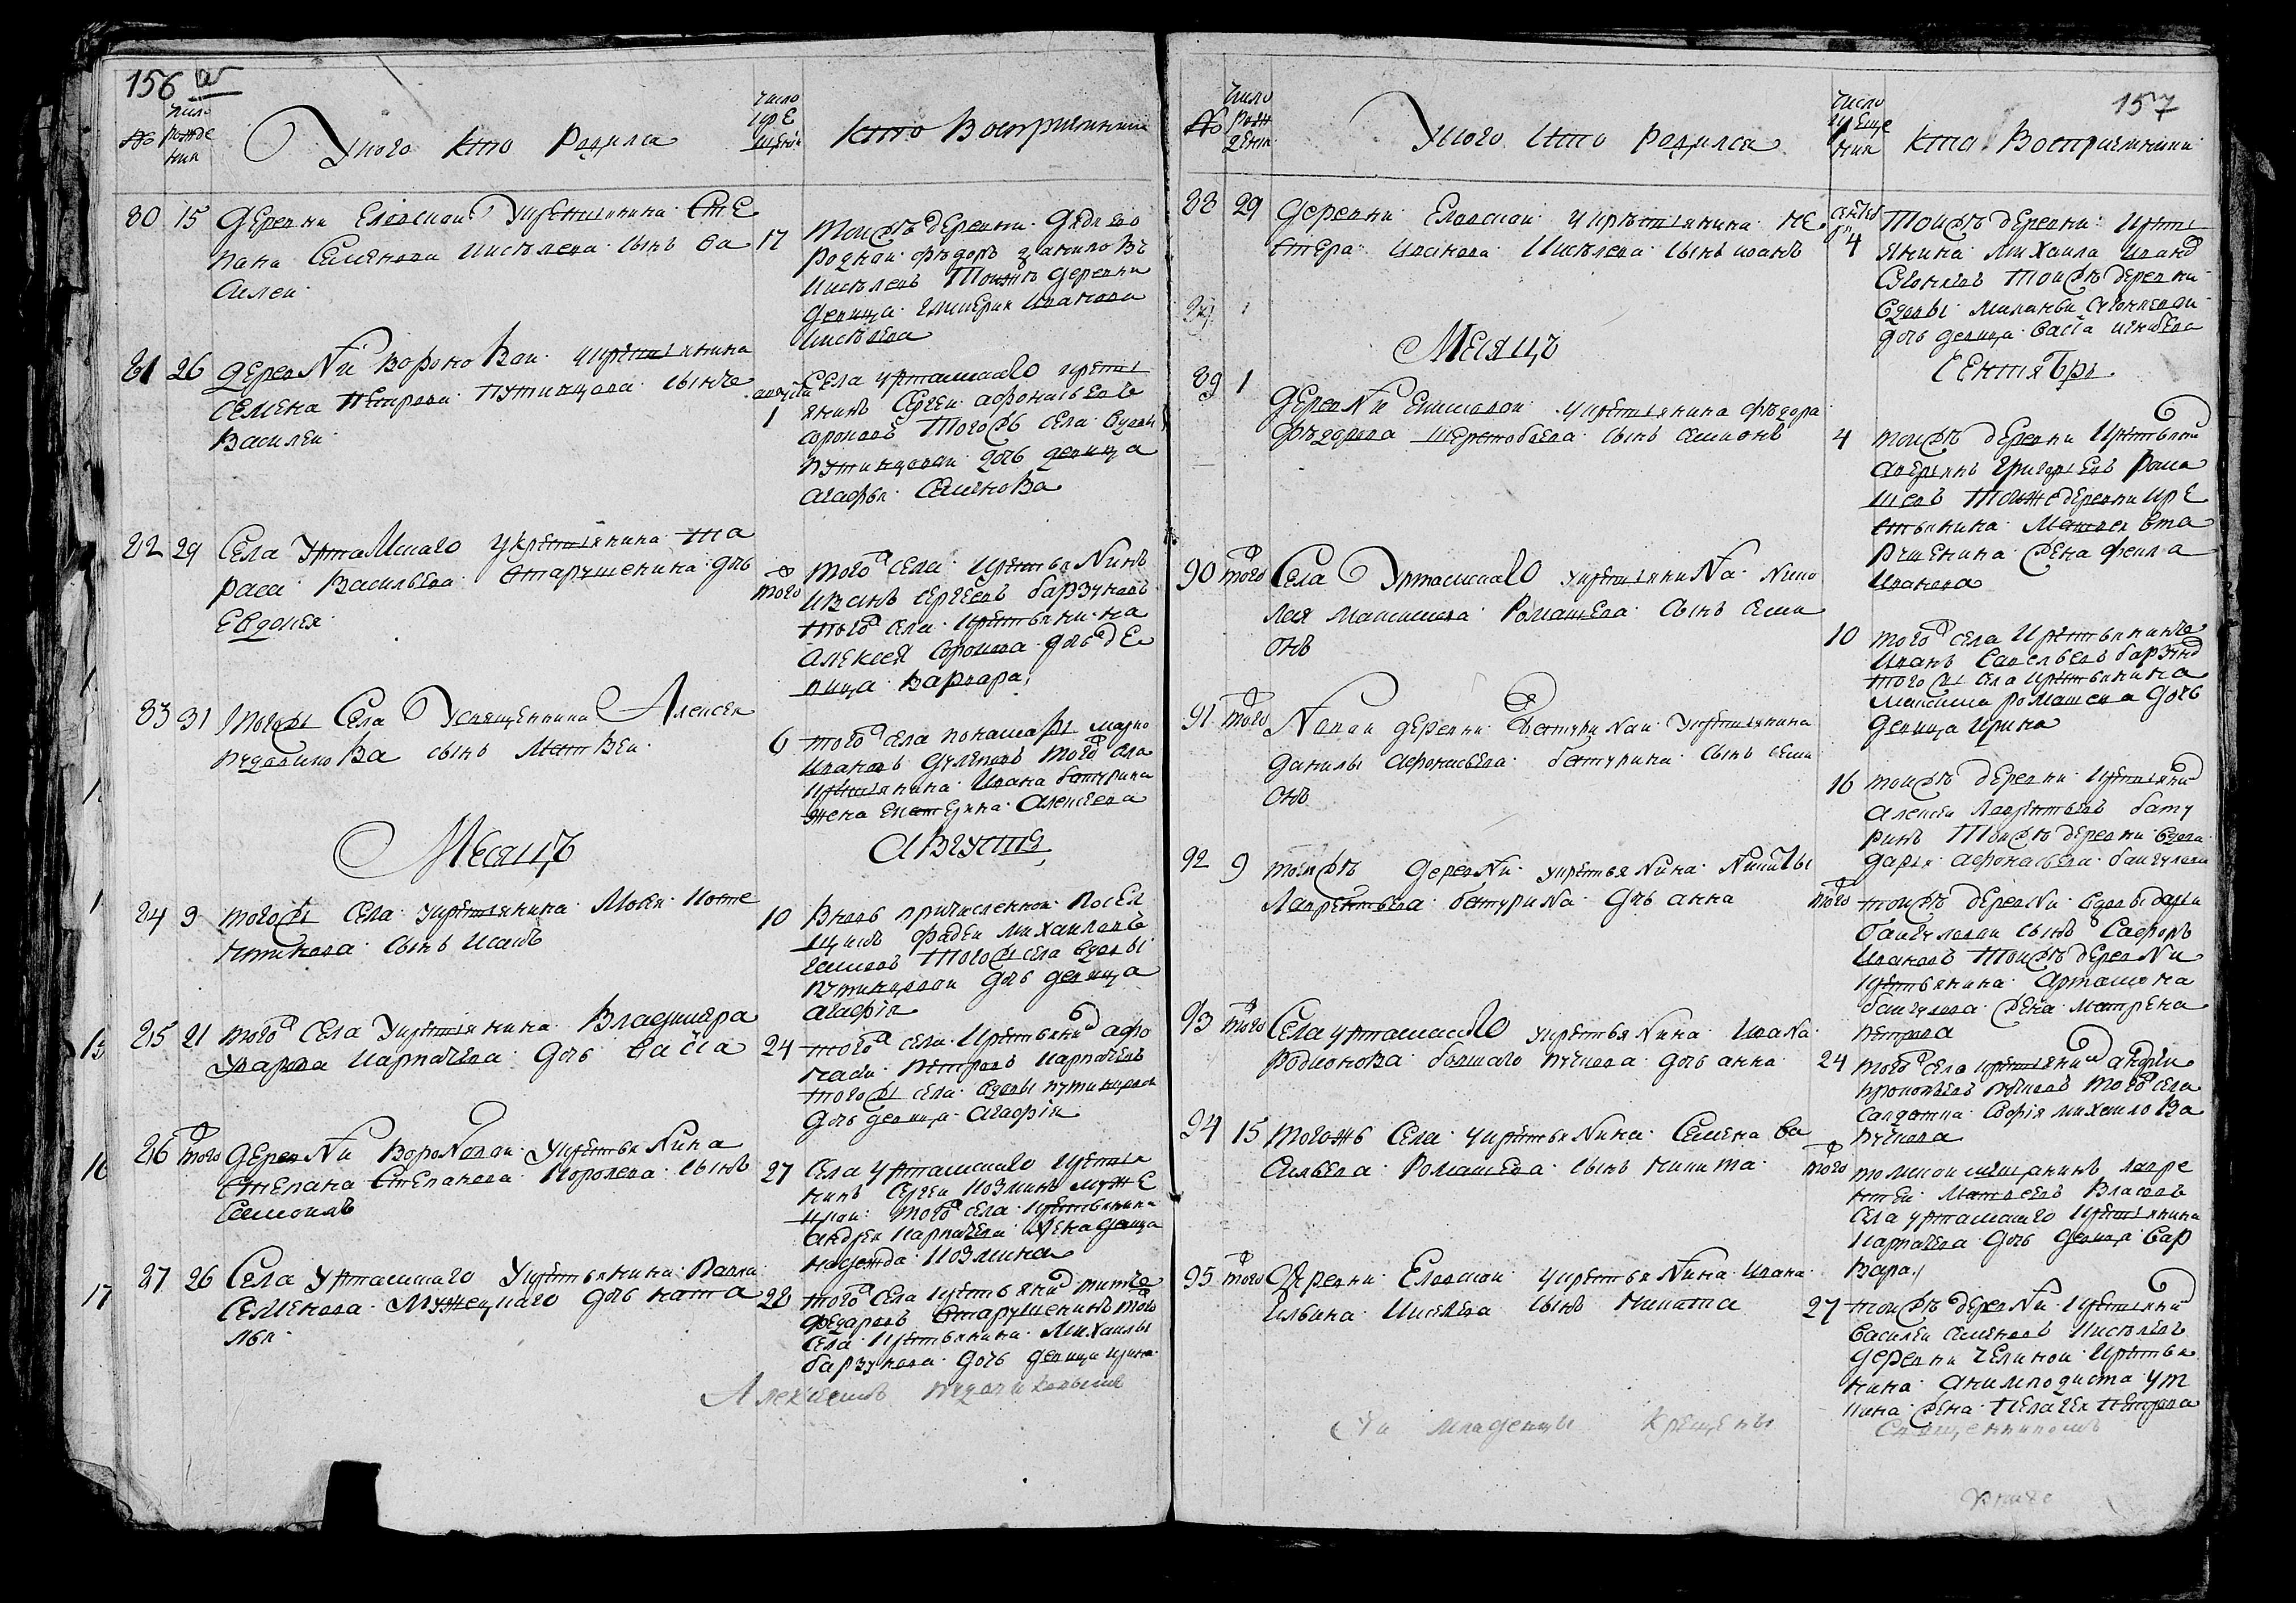 156
№
число рожде ния
У кого кто родился
число кре щения
кто восприемники
80 15 деревни Еловской у крестьянина Сте
пана Семенова Киселева сынъ Ва
силей
17 тойжъ деревни дядя его
родной Федоръ Данилов
Киселевъ тойжъ деревни
девица Иванова
Киселева
81 26 деревни Вороновой у крестьянина
Семена Петрова Путинцова сынъ
Василей
августа 1
села Уртамскаго крестья
янинъ Сергей Афонасьевъ
Сороковъ тогожъ села вдовы
Путинцовой дочь девица
Агафья Семенова
82 29 села Уртамскаго у крестьянина Та
раса Васильева Старушенина дочь
Евдокея
того
того села крестьянинъ
Иванъ Сергеевъ Барзуновъ
того села крестьянина
Алексея Сорокова дочь де
вица Варвара
83 31 тогожъ села у священника Алексея
сынъ Матвей
6 того села понамарь Марко
Ивановъ того села
крестьянина Ивана Батурина
жена Екатерина Алексеева
Месяцъ
Августъ
84 9 тогожъ села у крестьянина Мокея Коте
сынъ Исакъ
10 вновь причисленной посел
щикъ Фадей Михайловъ
тогожъ села вдовы
Путинцовой дочь девица
Агафiя
85 21 того села у крестьянина Владимера
Уварова Карпачева дочь Васса
24 того села крестьянинъ Афо
насей Петровъ Карпачевъ
тогожъ села вдовы Путинцовой
дочь девица Агафiя
86 того деревни Вороновой у крестьянина
Степана Степанова Королева сынъ
Самоилъ
27 села Уртамскаго крестья
нинъ Сергей Козминъ Муже
цкой того села крестьянина
Андрея Карпачева девица
Надежда Козмина
87 26 села Уртамскаго у крестьянина Павла
Семенова Мужецкаго дочь Ната
лья
28 того села крестьянинъ Титъ
Федоровъ Старушенинъ того
села крестьянина Михаилы
Барзунова дочь девица Ирина
Алексеемъ
157
№
число рож дения
У кого кто родился
число креще ния
кто восприемники
88 29 деревни Еловской у крестьянина Не
стера Иванова Киселева сынъ Иоанъ
сентяб 4
тойжъ деревни кресть
янина Михаила Иванъ
тойжъ деревни
вдовы Миланьи
дочь девица Васса
Месяцъ
Сентябрь
89 1
деревни у крестьянина Федора
Федорова Шерстобоева сынъ Симионъ
4 тойжъ деревни крестьянин
Аверьянъ Григорьевъ Рома
шевъ тоежъ деревни кре
стьянина Матвея Ста
рушенина жена Феила
Иванова
90 того села Уртамскаго у крестьянина Нико
лая Максимова Ромашева сынъ Сими
онъ
10 того села крестьянинъ
Иванъ Савельевъ Барзунов
тогожъ села крестьянина
Максима Ромашева дочь
девица Ирина
91 того Новой деревни Батуриной у крестьянина
Данилы Афонасьева Батурина сынъ Сими
онъ
16 тойжъ деревни крестьянин
Алексей Лаврентьевъ Бату
ринъ тойжъ деревни вдова
Дарья Афонасьева Байгулова
92 9 тоижъ деревни у крестьянина Никиты
Лаврентьева Батурина дочь Анна
того
тойжъ деревни вдовы Дарьи
Байгуловой сынъ Сафонъ
Ивановъ тойжъ деревни
крестьянина Артамона
Байгулова жена Матрена
Петрова
93 того села Уртамскаго у крестьянина Ивана
Родионова Большаго Пучкова дочь Анна
24 того села крестьянин Андрей
Прокопьевъ Пучковъ того села
салдатка Софiя Михайлова
Пучкова
94 15 тогожъ села у крестьянина Семена Ва
сильева Ромашева сынъ Никита
того
томской мещанинъ Лавре
нтей Матвеевъ Власовъ
села Уртамскаго крестьянина
Карпачева дочь девица Вар
вара
95 того деревни Еловской у крестьянина Ивана
Ильина Киселева сынъ Никита
27 тойжъ деревни крестьянин
Василей Семеновъ Киселевъ
деревни Челиной крестья
нина Анимподиста Ут
кина жена Пелагея Петрова
Сiи младенцы крещены
священникомъ